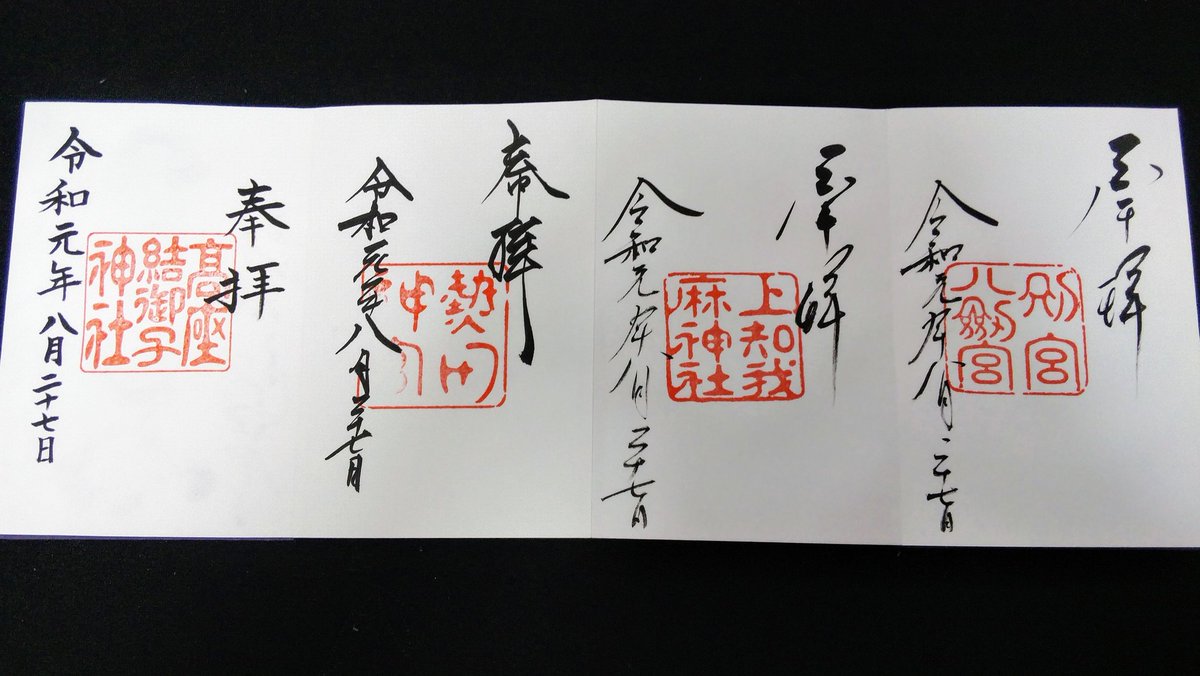 奉拝
別宮
八剱宮
令和元年八月二十七日
奉拝
上知我
麻神社
令和元年八月二十七日
奉拝
熱田
神宮
令和元年八月二十七日
奉拝
髙座
結御子
神社
令和元年八月二十七日